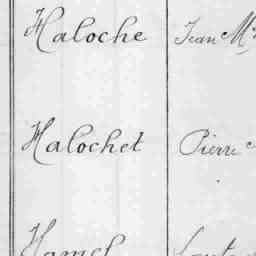 Haloche Jean M
Halochet Pierre
Hamel